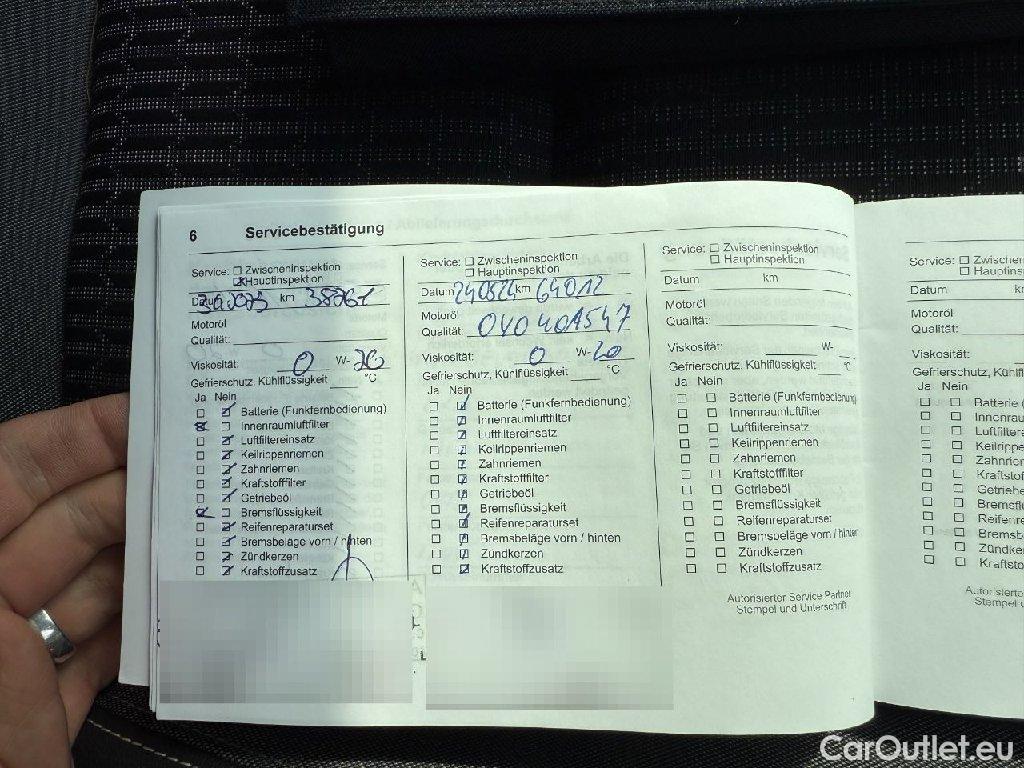 6 Servicebestätigung
Service: Zwischeninspektion
Hauptinspektion
km 38761
Motoröl
Qualität:
Viskosität: 0 W- 20
Gefrierschutz, Kühlflüssigkeit °C
Ja Nein
Batterie (Funkfernbedienung)
Innenraumluftfilter
Luftfiltereinsatz
Keilrippenriemen
Zahnriemen
Kraftstofffilter
Getriebeöl
Bremsflüssigkeit
Reifenreparaturset
Bremsbeläge vorn / hinten
Zündkerzen
Kraftstoffzusatz
Service: Zwischeninspektion
Hauptinspektion
Datum 240824 km 64012
Motoröl
Qualität: 040401547
Viskosität: 0 W- 20
Gefrierschutz, Kühlflüssigkeit °C
Ja Nein
Batterie (Funkfernbedienung)
Innenraumluftfilter
Luftfiltereinsatz
Keilrippenriemen
Zahnriemen
Kraftstofffilter
Getriebeöl
Bremsflüssigkeit
Reifenreparaturset
Bremsbeläge vorn / hinten
Zündkerzen
Kraftstoffzusatz
Service: Zwischeninspektion
Hauptinspektion
Datum km
Motoröl
Qualität:
Viskosität: W-
Gefrierschutz, Kühlflüssigkeit °C
Ja Nein
Batterie (Funkfernbedienung
Innenraumluftfilter
Luftfiltereinsatz
Keilrippenriemen
Zahnriemen
Kraftstofffilter
Getriebeöl
Bremsflüssigkeit
Reifenreparaturset
Bremsbeläge vorn / hinten
Zündkerzen
Kraftstoffzusatz
Autorisierter Service Partner
Stempel und Unterschrift
Service: Zwischeni
Hauptinsp
Datum km
Motoröl
Qualität:
Viskosität:
Gefrierschutz, Kühlfl
Ja Nein
Batterie
Innenrau
Luftfilter
Keilrippe
Zahnrie
Kraftsto
Getriebe
Bremsfl
Reifenr
Bremsb
Zündke
Kraftsto
Autorisierte
Stempel u
CarOutlet.eu